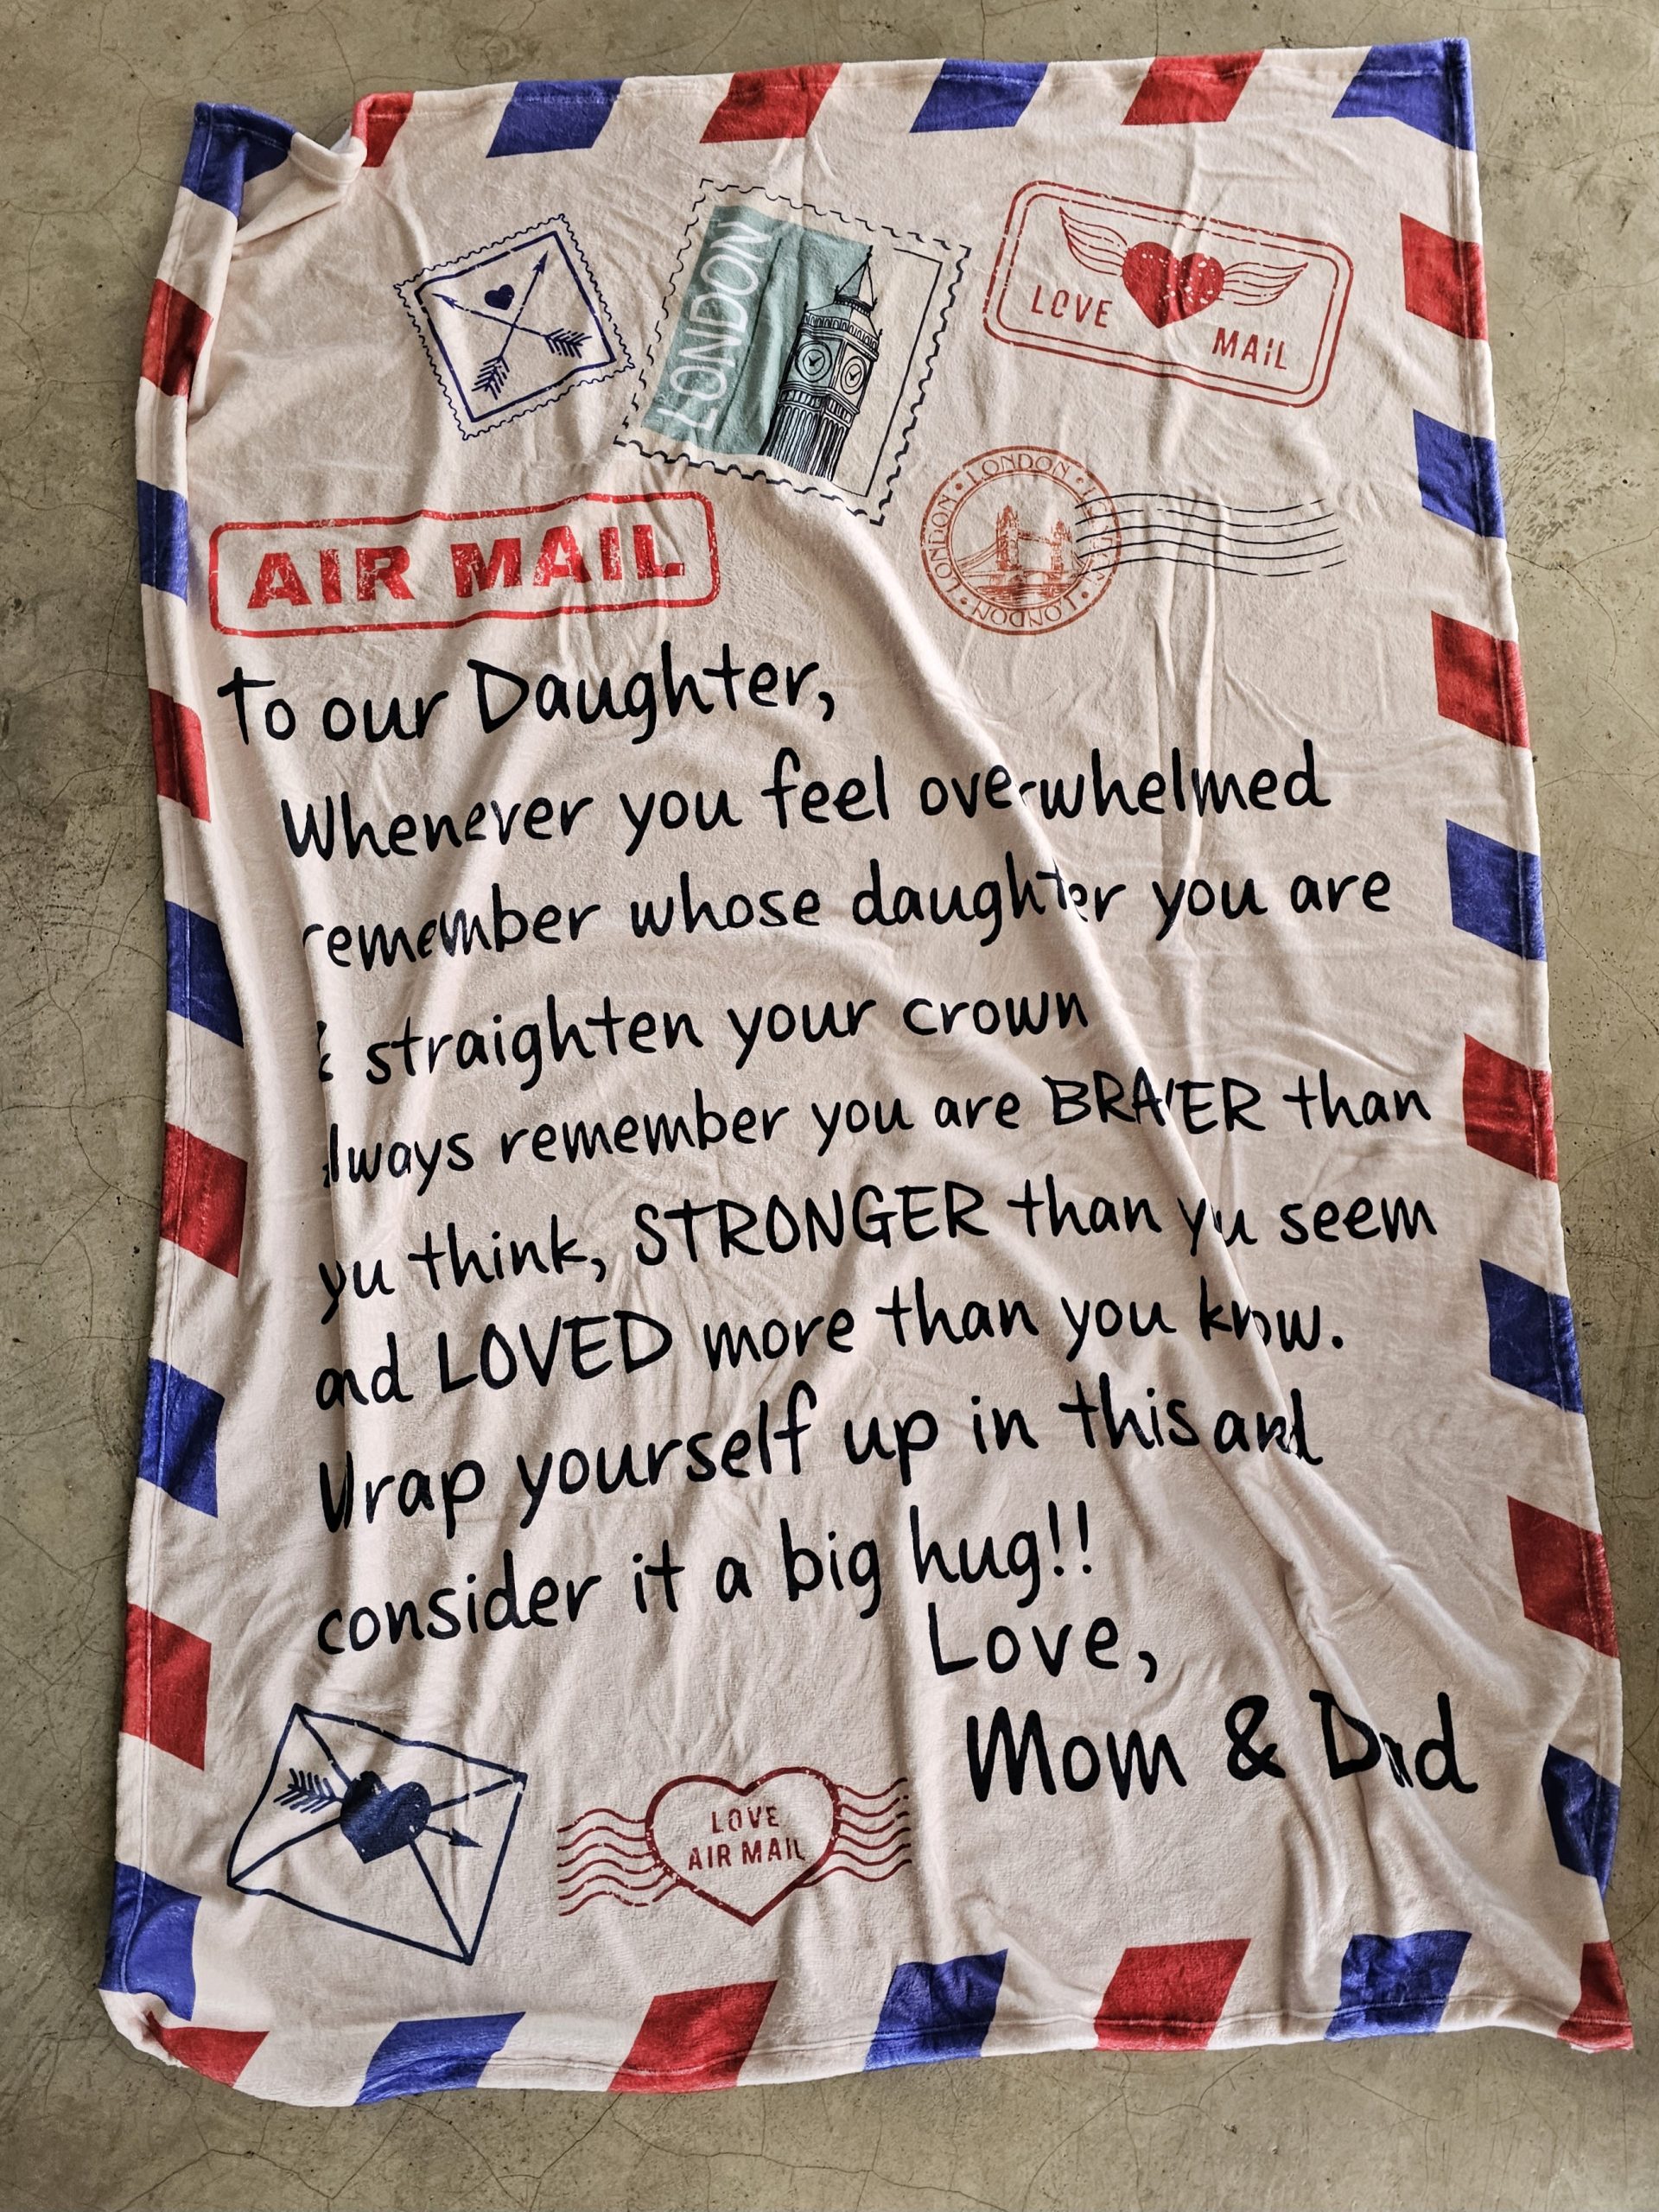 LONDON
LOVE
MAIL
LONDON • LONDON
LONDON • LONDON
AIR MAIL
To our Daughter,
Whenever you feel overwhelmed
remember whose daughter you are
& straighten your crown
lways remember you are BRAVER than
you think, STRONGER than you seem
and LOVED more than you know.
Wrap yourself up in this and
consider it a big hug!!
Love,
Mom & Dad
LOVE
AIR MAIL